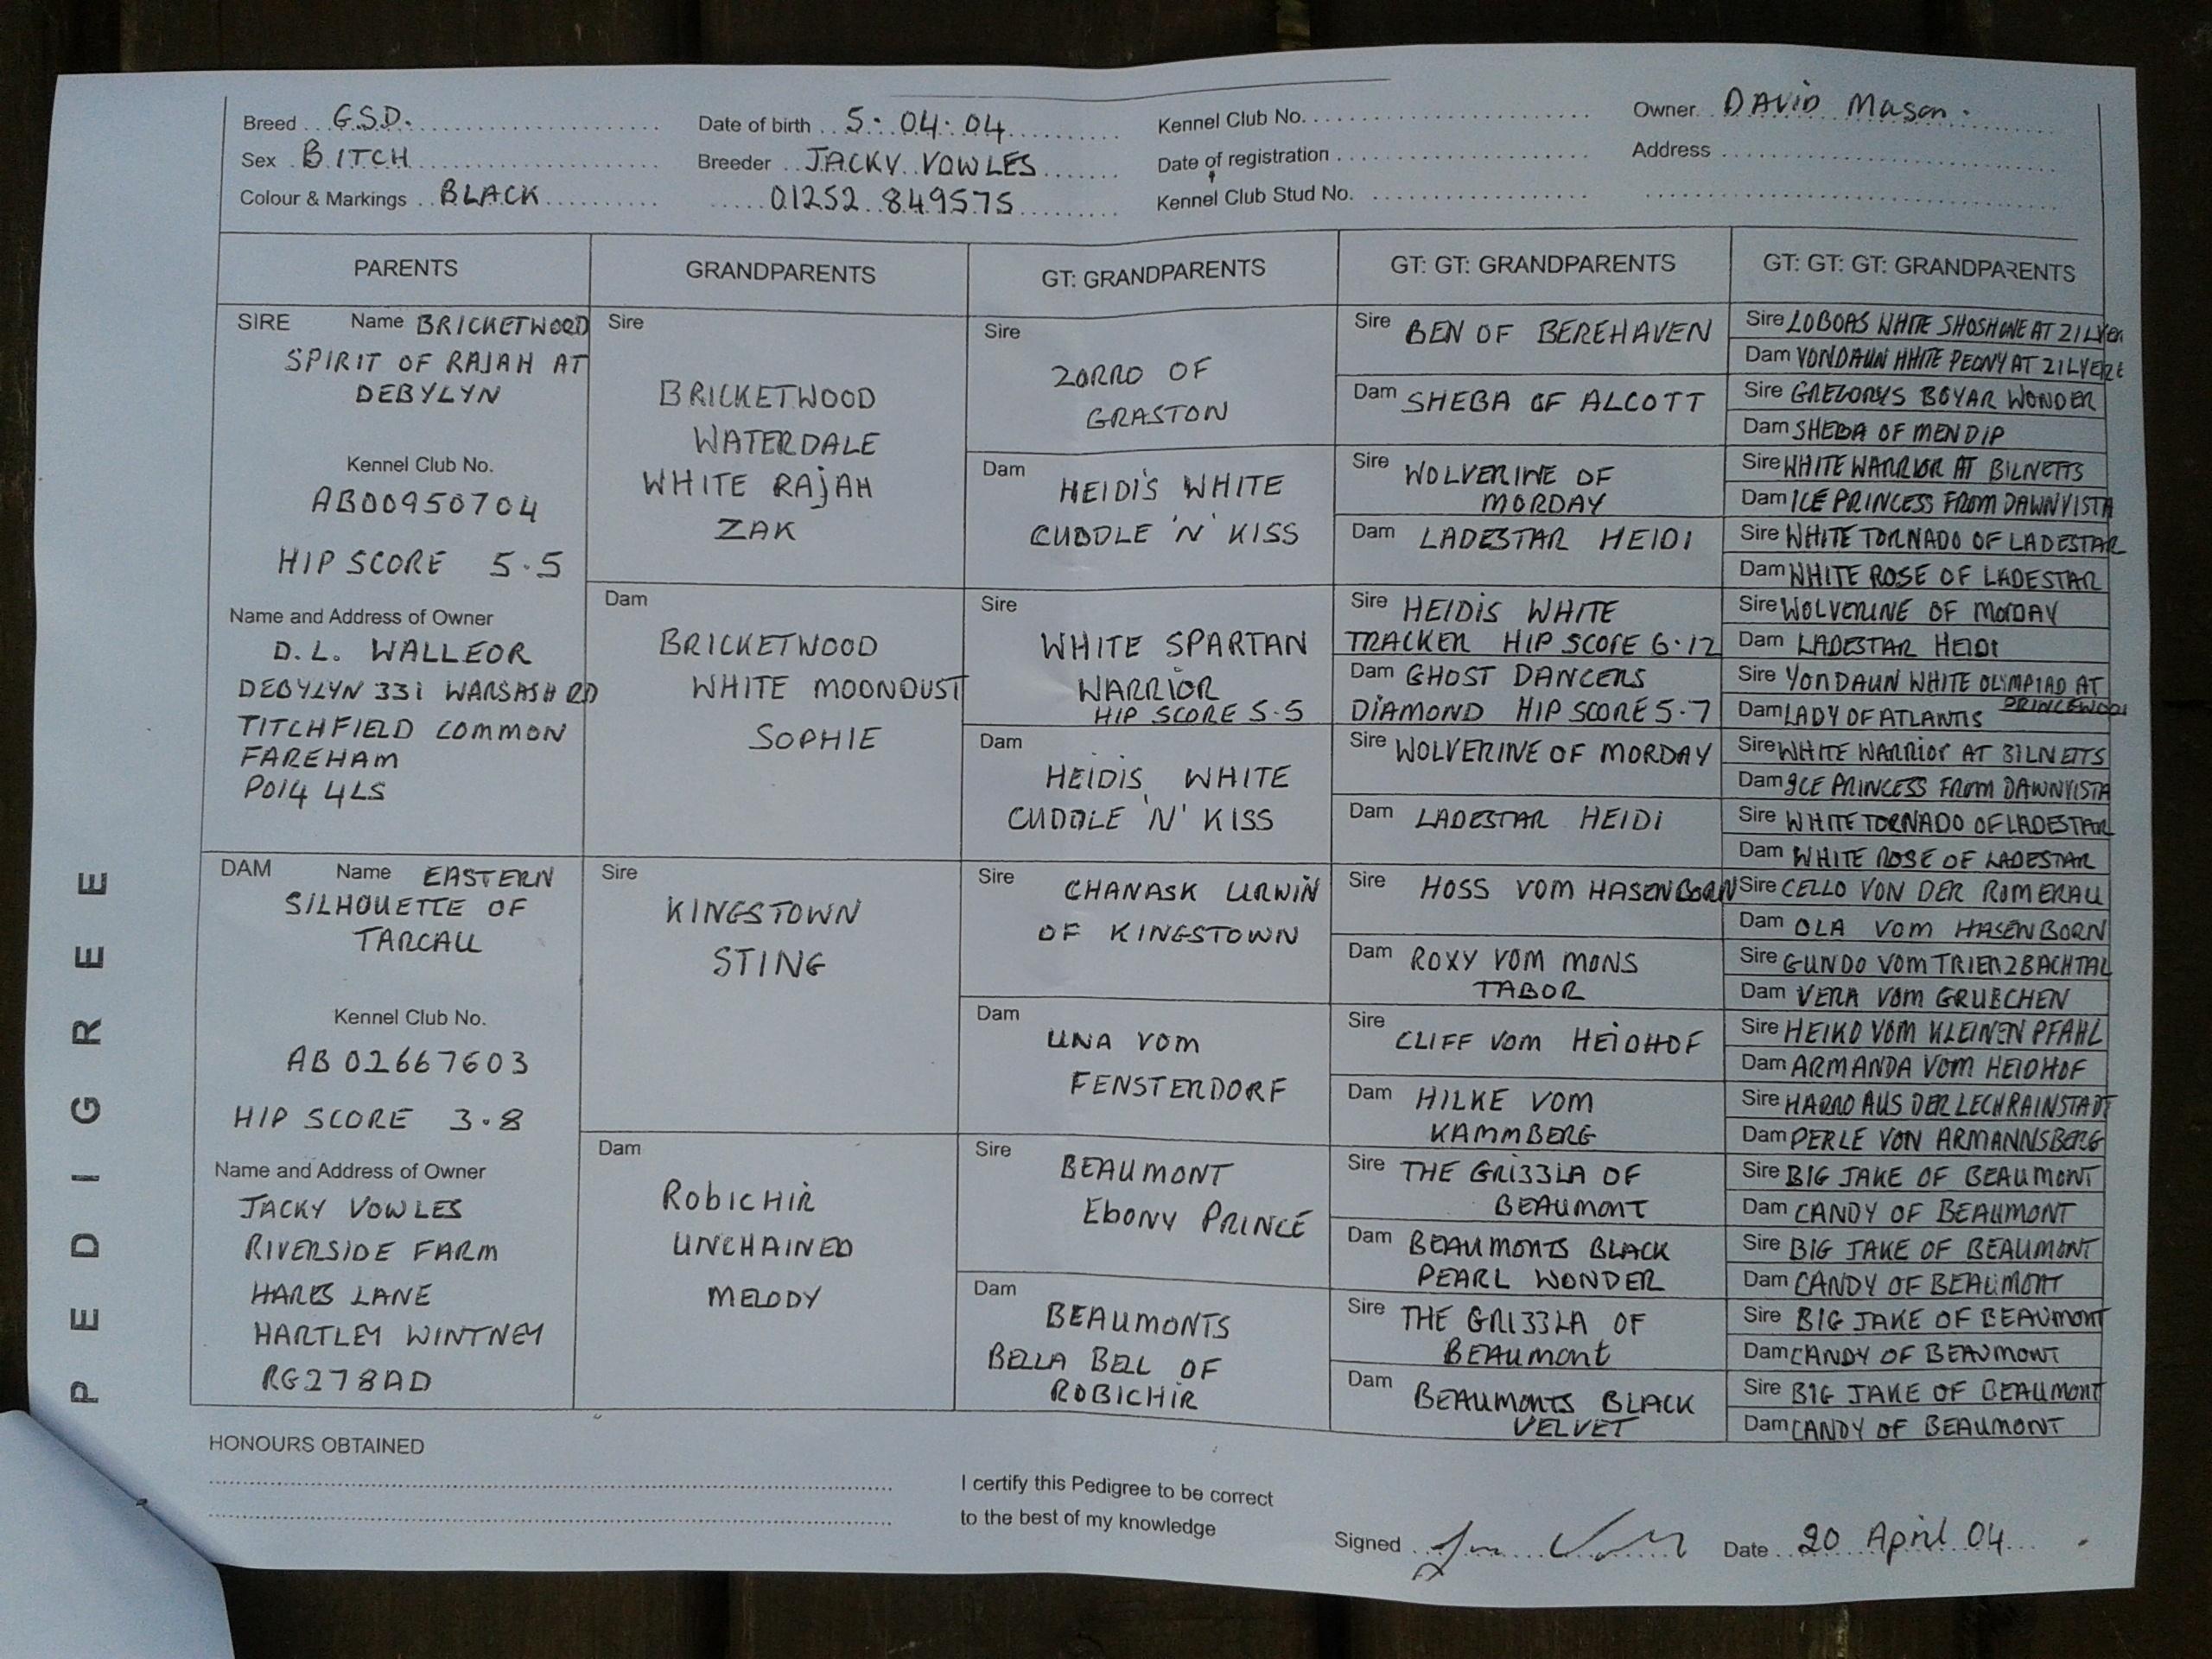 Breed G.S.D.
Sex BITCH
Colour & Markings BLACK
Date of birth 5.04.04
Breeder JACKY VOWLES
01252 849575
Kennel Club No.
Date of registration
Kennel Club Stud No.
Owner DAVID Mason.
Address
PEDIGREE
PARENTS
SIRE Name BRICKETWOOD
SPIRIT OF RAJAH AT
DEBYLYN
Kennel Club No.
AB00950704
HIP SCORE 5.5
Name and Address of Owner
D.L. WALLEOR
DEBYLYN 331 WARSASH RD
TITCHFIELD COMMON
FAREHAM
PO14 4LS
DAM Name EASTERN
SILHOUETTE OF
TARCALL
Kennel Club No.
AB 02667603
HIP SCORE 3.8
Name and Address of Owner
JACKY VOWLES
RIVERSIDE FARM
HARES LANE
HARTLEY WINTNEY
RG278AD
GRANDPARENTS
Sire
BRICKETWOOD
WATERDALE
WHITE RAJAH
ZAK
Dam
BRICKETWOOD
WHITE MOONDUST
SOPHIE
Sire
KINGSTOWN
STING
Dam
ROBICHIR
UNCHAINED
MELODY
GT: GRANDPARENTS
Sire
ZORRO OF
GRASTON
Dam
HEIDIS WHITE
CUDDLE 'N' KISS
Sire
WHITE SPARTAN
WARRIOR
HIP SCORE 5.5
Dam
HEIDIS WHITE
CUDDLE 'N' KISS
Sire
CHANASK URWIN
OF KINGSTOWN
Dam
UNA VOM
FENSTERDORF
Sire
BEAUMONT
EBONY PRINCE
Dam
BEAUMONTS
BELLA BELL OF
ROBICHIR
GT: GT: GRANDPARENTS
Sire BEN OF BEREHAVEN
Dam SHEBA OF ALCOTT
Sire WOLVERINE OF
MORDAY
Dam LADESTAR HEIDI
Sire HEIDIS WHITE
TRACKER HIP SCORE 6.12
Dam GHOST DANCERS
DIAMOND HIP SCORE 5.7
Sire WOLVERINE OF MORDAY
Dam LADESTAR HEIDI
Sire HOSS VOM HASENBORN
Dam ROXY VOM MONS
TABOR
Sire CLIFF VOM HEIDHOF
Dam HILKE VOM
KAMMBERG
Sire THE GRIZZLA OF
BEAUMONT
Dam BEAUMONTS BLACK
PEARL WONDER
Sire THE GRIZZLA OF
BEAUMONT
Dam BEAUMONTS BLACK
VELVET
GT: GT: GT: GRANDPARENTS
Sire LOBOAS WHITE AT
Dam WHITE PEONY AT
Sire BOYAR WONDER
Dam SHEBA OF MENDIP
Sire WHITE WARRIOR AT BILNETTS
Dam ICE PRINCESS FROM DAWNVISTA
Sire WHITE TORNADO OF LADESTAR
Dam WHITE ROSE OF LADESTAR
Sire WOLVERINE OF MORDAY
Dam LADESTAR HEIDI
Sire YONDAUN WHITE OLYMPIAD AT
PRINCEWOOD
Dam LADY OF ATLANTIS
Sire WHITE WARRIOR AT BILNETTS
Dam ICE PRINCESS FROM DAWNVISTA
Sire WHITE TORNADO OF LADESTAR
Dam WHITE ROSE OF LADESTAR
Sire CELLO VON DER ROMERAU
Dam OLA VOM HASENBORN
Sire GUNDO VOM TRIENZBACHTAL
Dam VERA VOM GRUBCHEN
Sire HEIKO VOM KLEINEN PFAHL
Dam ARMANDA VOM HEIDHOF
Sire HARRO AUS DER LECHRAINSTADT
Dam PERLE VON ARMANNSBERG
Sire BIG JAKE OF BEAUMONT
Dam CANDY OF BEAUMONT
Sire BIG JAKE OF BEAUMONT
Dam CANDY OF BEAUMONT
Sire BIG JAKE OF BEAUMONT
Dam CANDY OF BEAUMONT
Sire BIG JAKE OF BEAUMONT
Dam CANDY OF BEAUMONT
HONOURS OBTAINED
I certify this Pedigree to be correct
to the best of my knowledge
Signed
Date 20 April 04